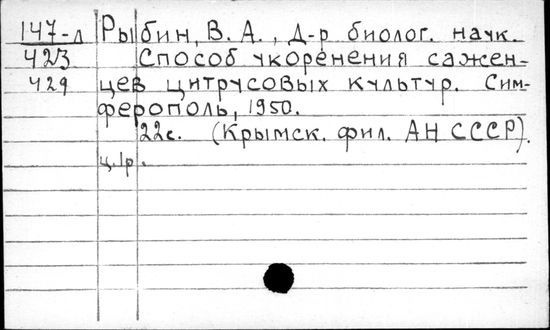 147-л Рыбин, В. А., Д-р биолог. наук.
423 Способ укоренения сажен-
429 цев цитрусовых культур. Сим-
ферополь, 1950.
22с. (Крымск. фил. АН СССР).
ц. 1р.